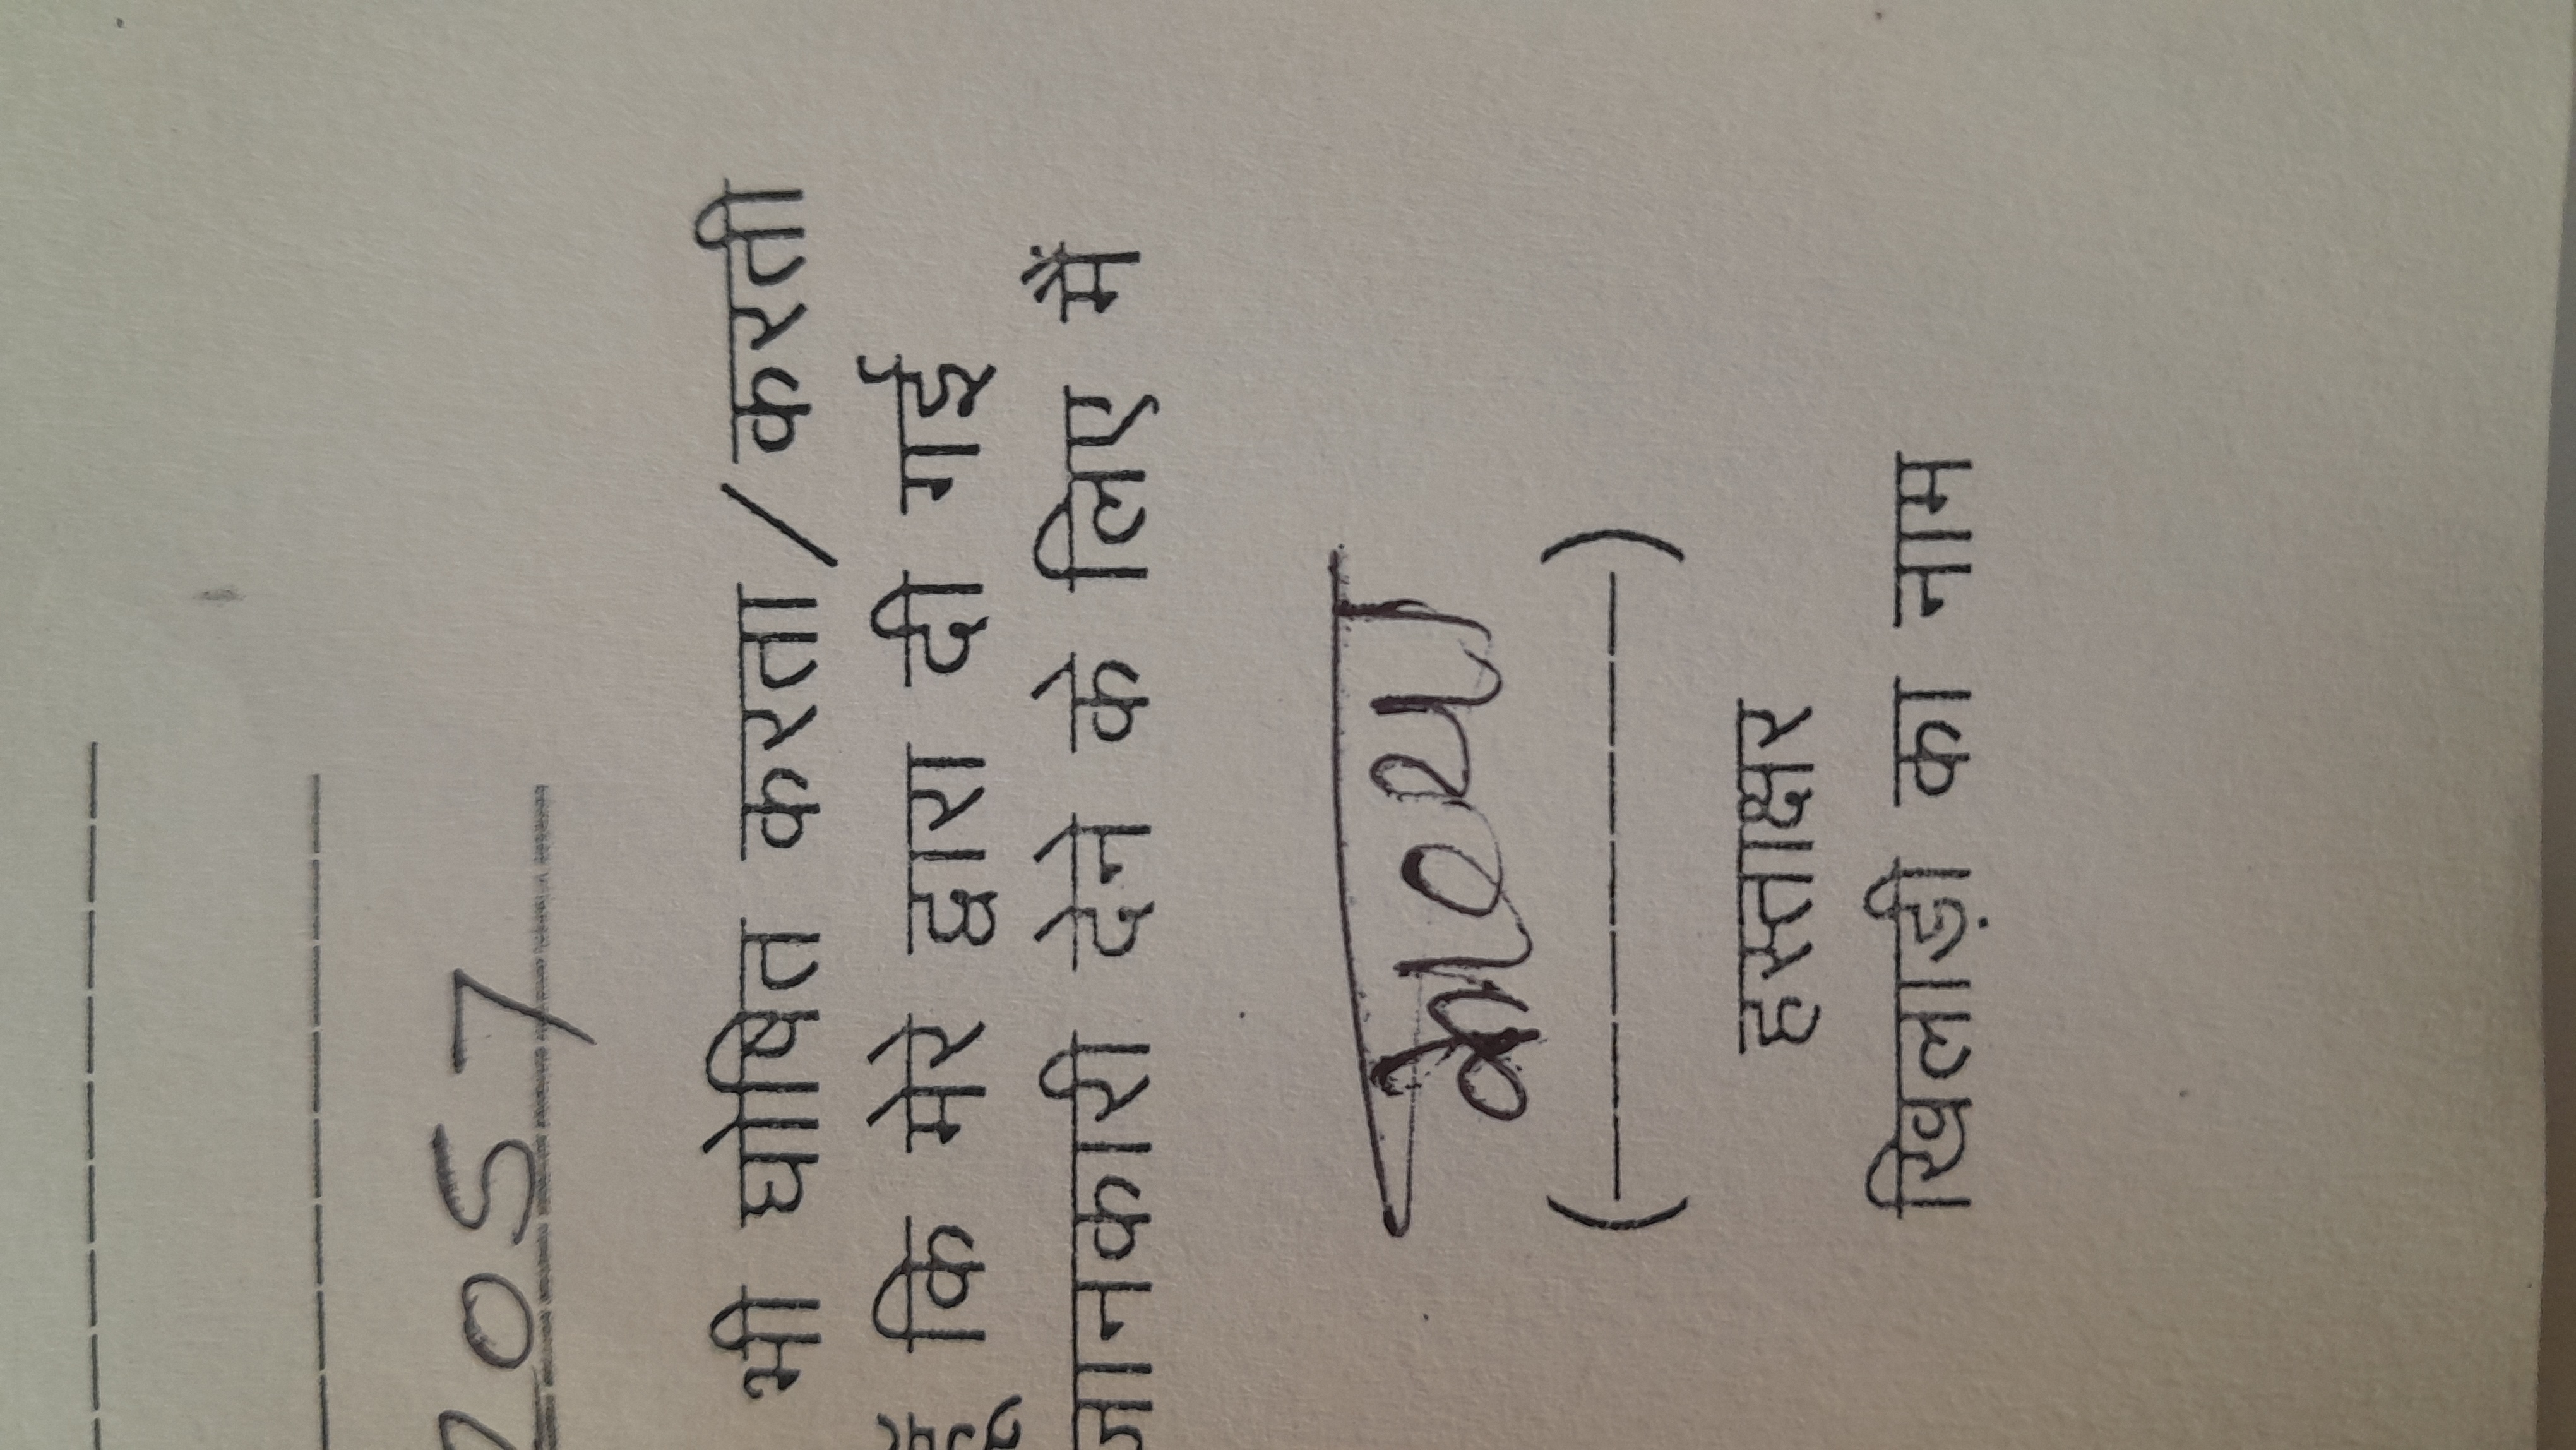 2057
भी घोषित करता / करती
हूँ कि मेरे द्वारा दी गई
जानकारी देने के लिए मैं
(------------)
हस्ताक्षर
खिलाड़ी का नाम